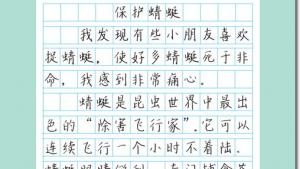 保护蜻蜓
我发现有些小朋友喜欢
捉蜻蜓，使好多蜻蜓死于非
命，我感到非常痛心。
蜻蜓是昆虫世界中最出
色的“除害飞行家”。它可以
连续飞行一个小时不着陆。